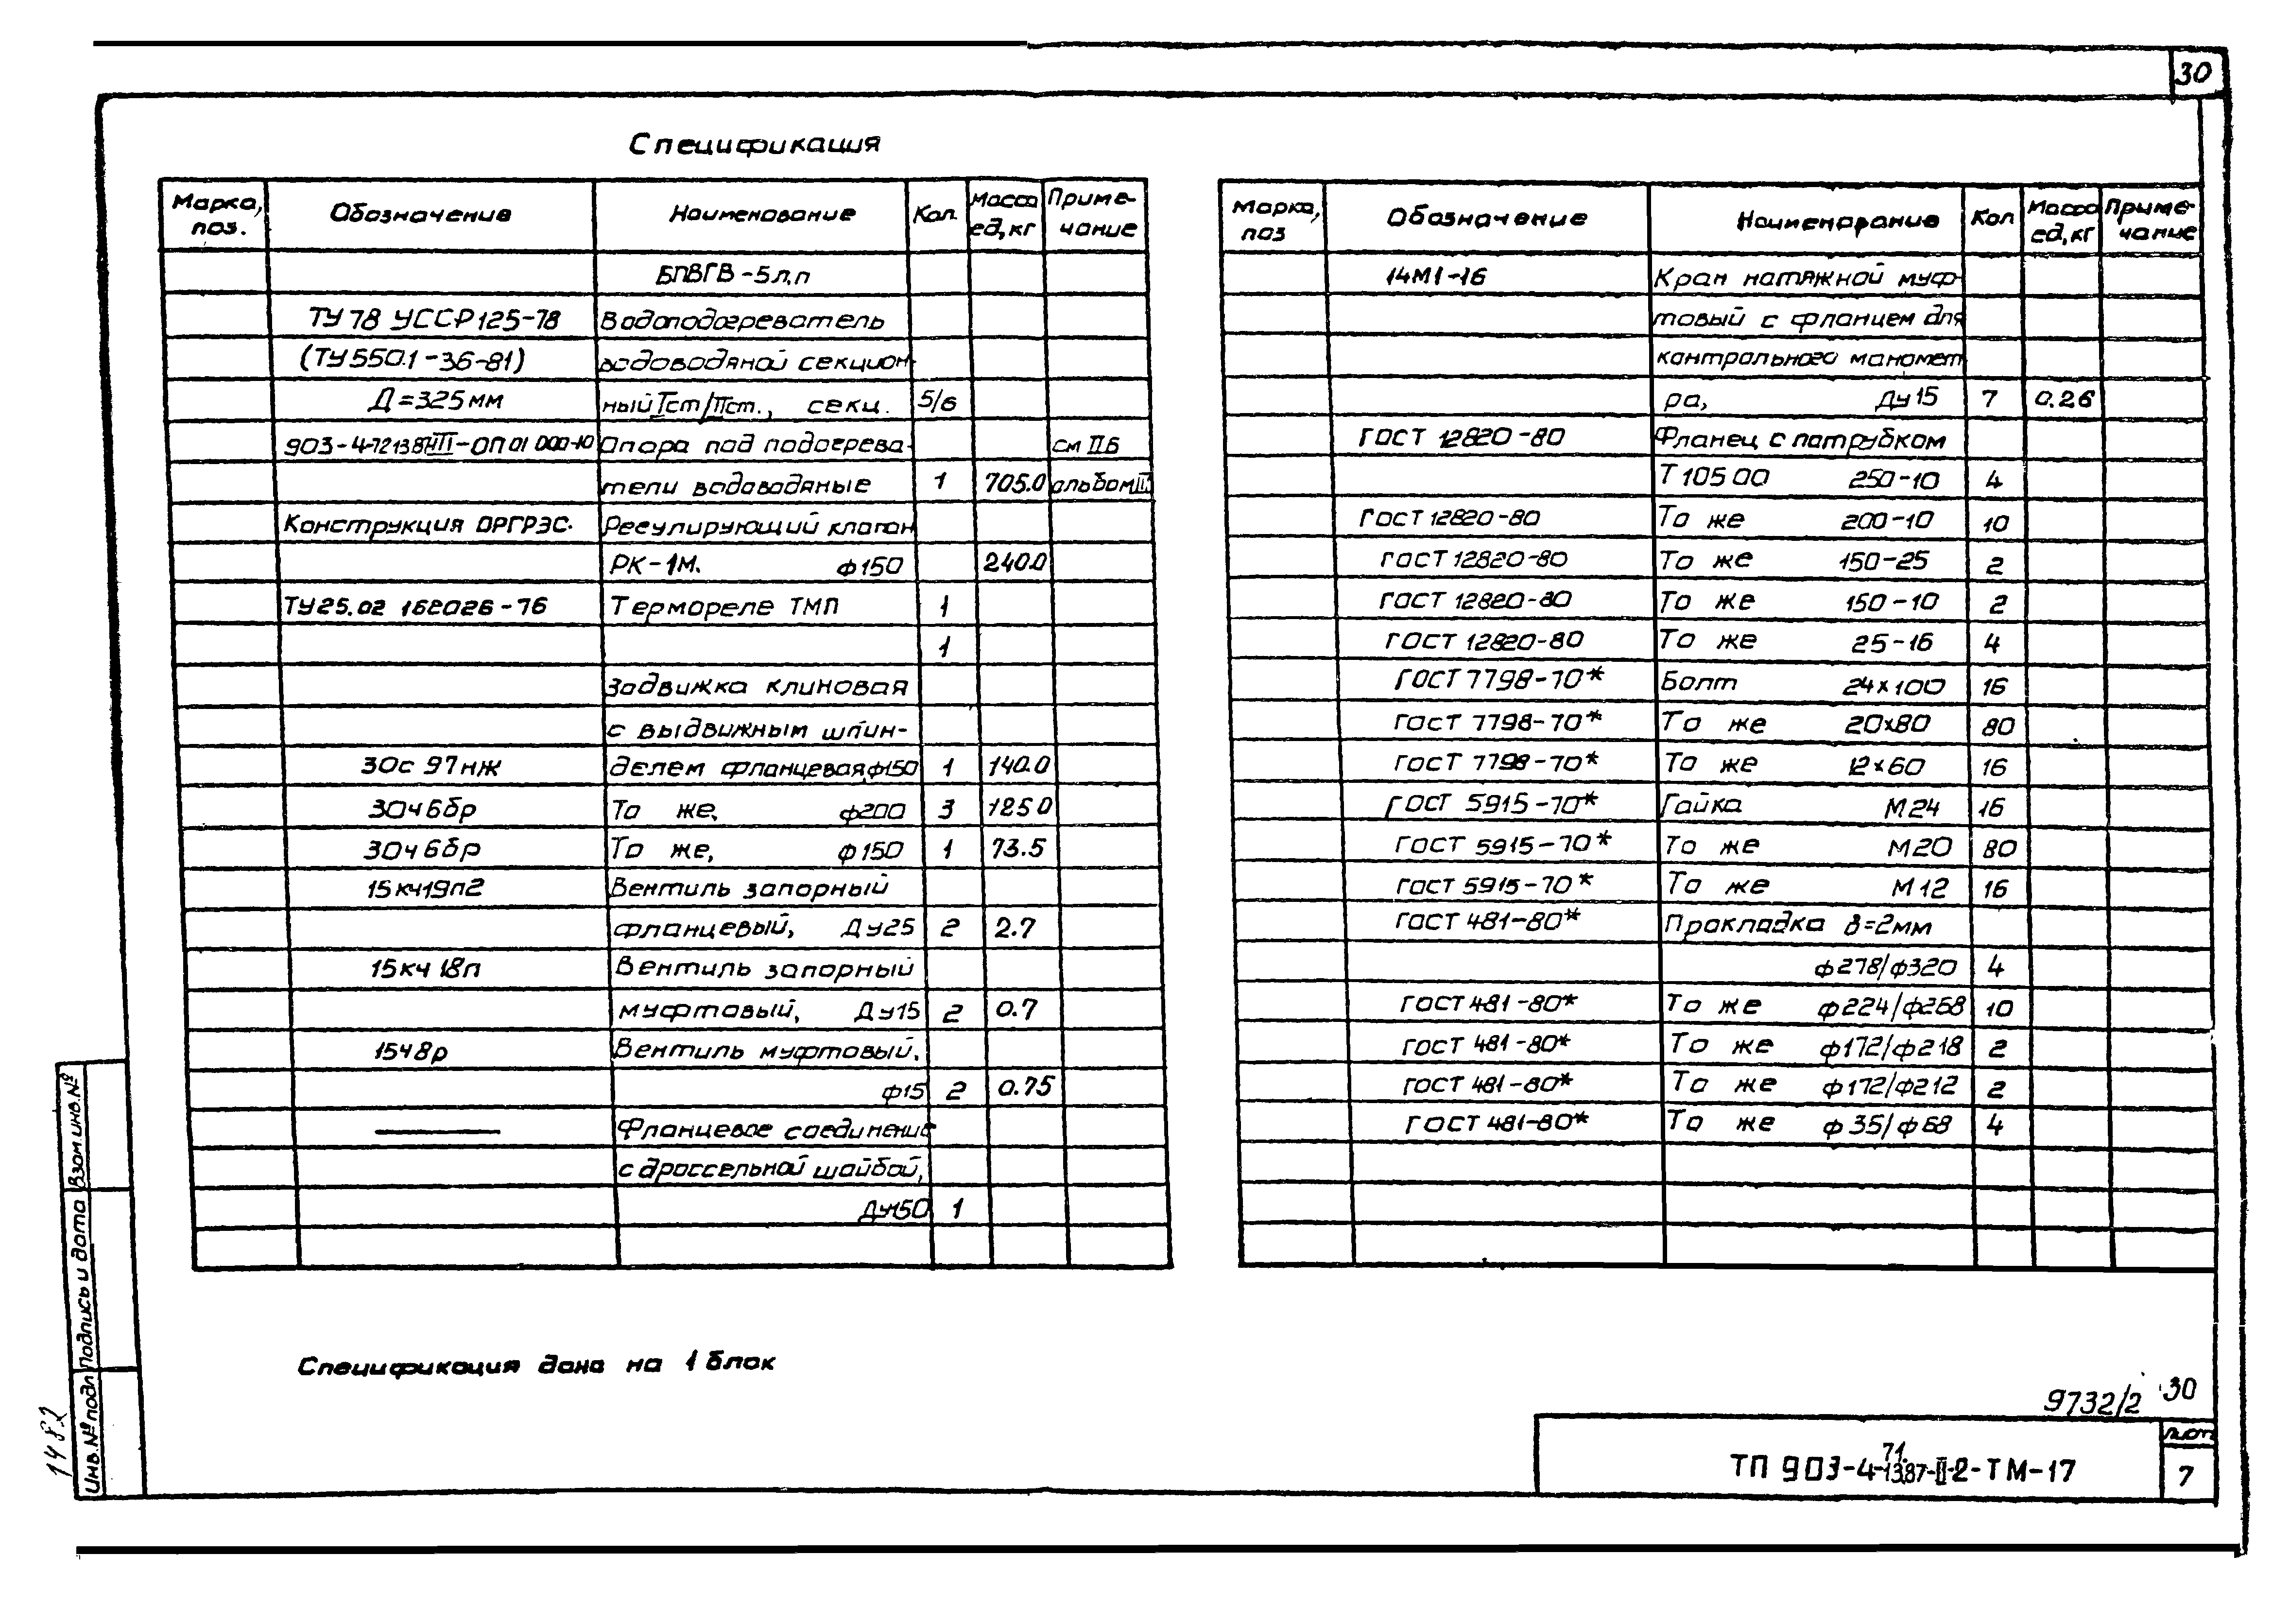 30
Спецификация
Марка, поз. Обозначение Наименование Кол. Масса ед,кг Примечание
БПВГВ-5л,п
ТУ 78 УССР 125-78 Водоподогреватель
(ТУ 550.1-36-81) водоводяной секцион-
Д=325мм ный Iст/IIст., секц. 5/6
903-4- -ОП 01 000-10 Опора под подогрева- см II.Б
тели водоводяные 1 705.0 альбом
Конструкция ОРГРЭС. Регулирующий клапан
РК-1м. ф150 240.0
ТУ25.02 162026-76 Термореле ТМП 1
1
Задвижка клиновая
с выдвижным шпин-
30с 97нж делем фланцевая ф150 1 140.0
30ч6бр То же, ф200 3 125.0
30ч6бр То же, ф150 1 73.5
15кч19п2 Вентиль запорный
фланцевый, Ду25 2 2.7
15кч 18п Вентиль запорный
муфтовый, Ду15 2 0.7
15ч8р Вентиль муфтовый,
ф15 2 0.75
Фланцевое соединение
с дроссельной шайбой,
Ду150 1
Марка, поз Обозначение Наименование Кол Масса ед,кг Примечание
14М1-16 Кран натяжной муф-
товый с фланцем для
контрольного маномет
ра, Ду15 7 0.26
ГОСТ 12820-80 Фланец с патрубком
Т 105 00 250-10 4
ГОСТ 12820-80 То же 200-10 10
ГОСТ 12820-80 То же 150-25 2
ГОСТ 12820-80 То же 150-10 2
ГОСТ 12820-80 То же 25-16 4
ГОСТ 7798-70* Болт 24х100 16
ГОСТ 7798-70* То же 20х80 80
ГОСТ 7798-70* То же 12х60 16
ГОСТ 5915-70* Гайка М24 16
ГОСТ 5915-70* То же М20 80
ГОСТ 5915-70* То же М12 16
ГОСТ 481-80* Прокладка в=2мм
ф278/ф320 4
ГОСТ 481-80* То же ф224/ф268 10
ГОСТ 481-80* То же ф172/ф218 2
ГОСТ 481-80* То же ф172/ф212 2
ГОСТ 481-80* То же ф35/ф68 4
Спецификация дана на 1 блок
9732/2 30
ТП 903-4-71.13.87-II-2-ТМ-17
лист
7
Взам.инв.№
Подпись и дата
Инв.№подл
1482